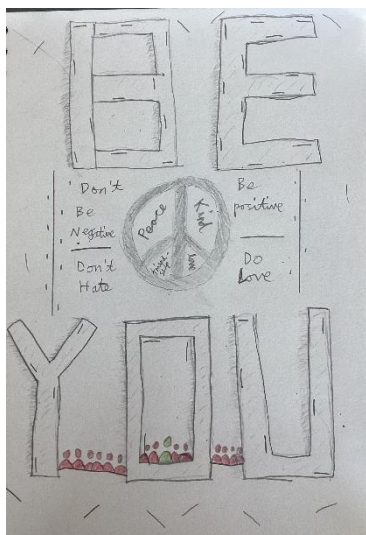 BE
Don't
Be
Negative
Don't
Hate
Peace
Kind
Love
Be
positive
Do
Love
YOU